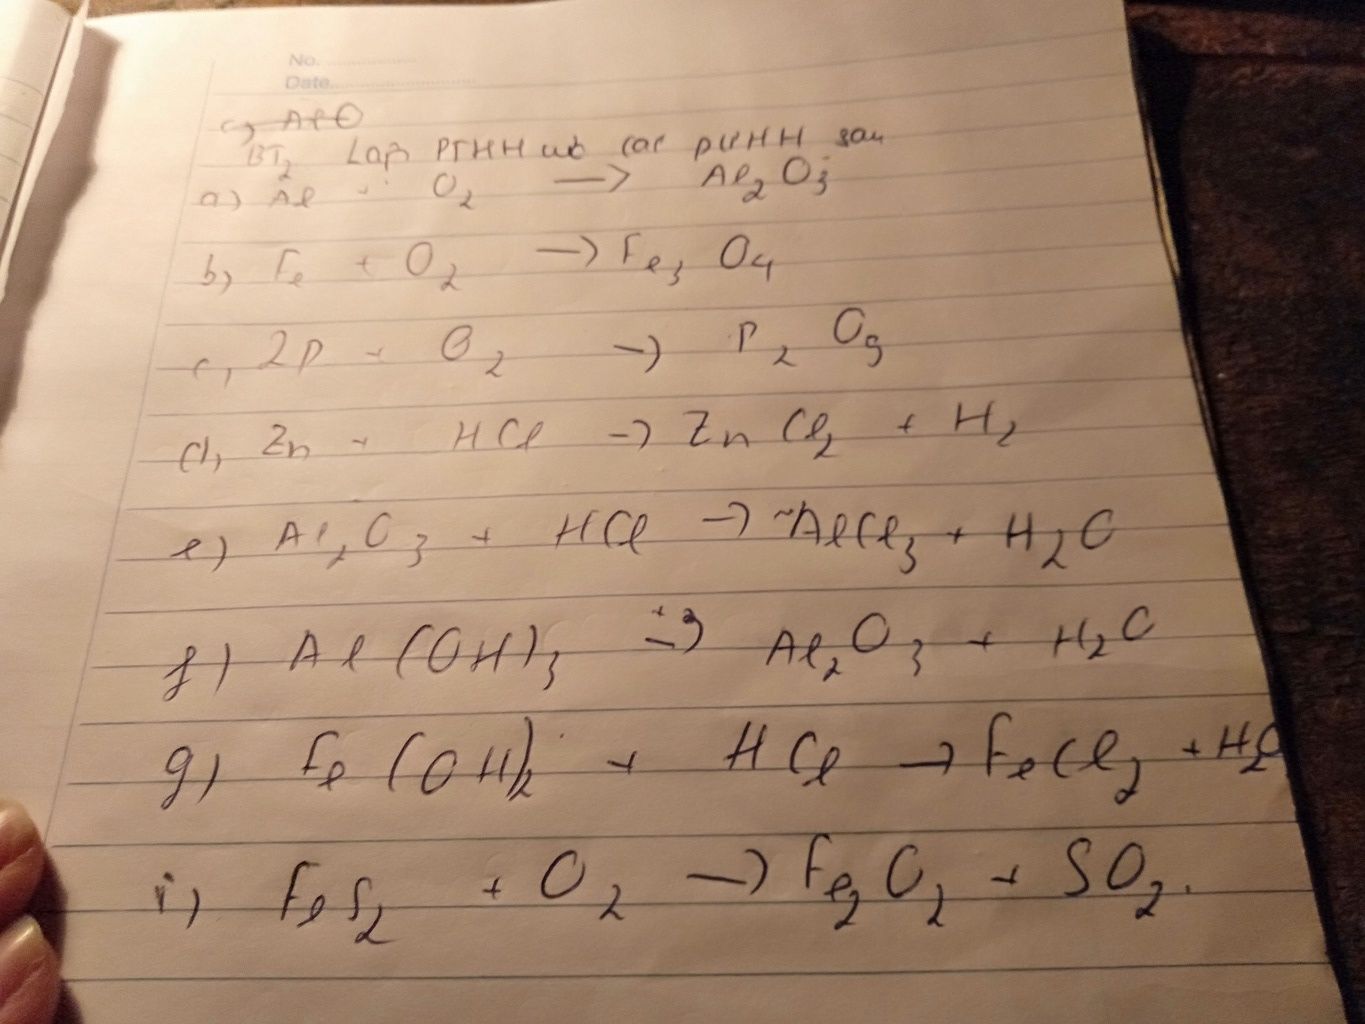 No. ..................
Date..............................
c, AlO
BT2 Lập PTHH các PƯHH sau
a) Al + O2 → Al2O3
b, Fe + O2 → Fe3O4
c, 2P + O2 → P2O5
d, Zn + HCl → ZnCl2 + H2
e) Al2O3 + HCl → AlCl3 + H2O
f) Al(OH)3 → Al2O3 + H2O
g) Fe(OH)2 + HCl → FeCl2 + H2O
i) FeS2 + O2 → Fe2O2 + SO2.